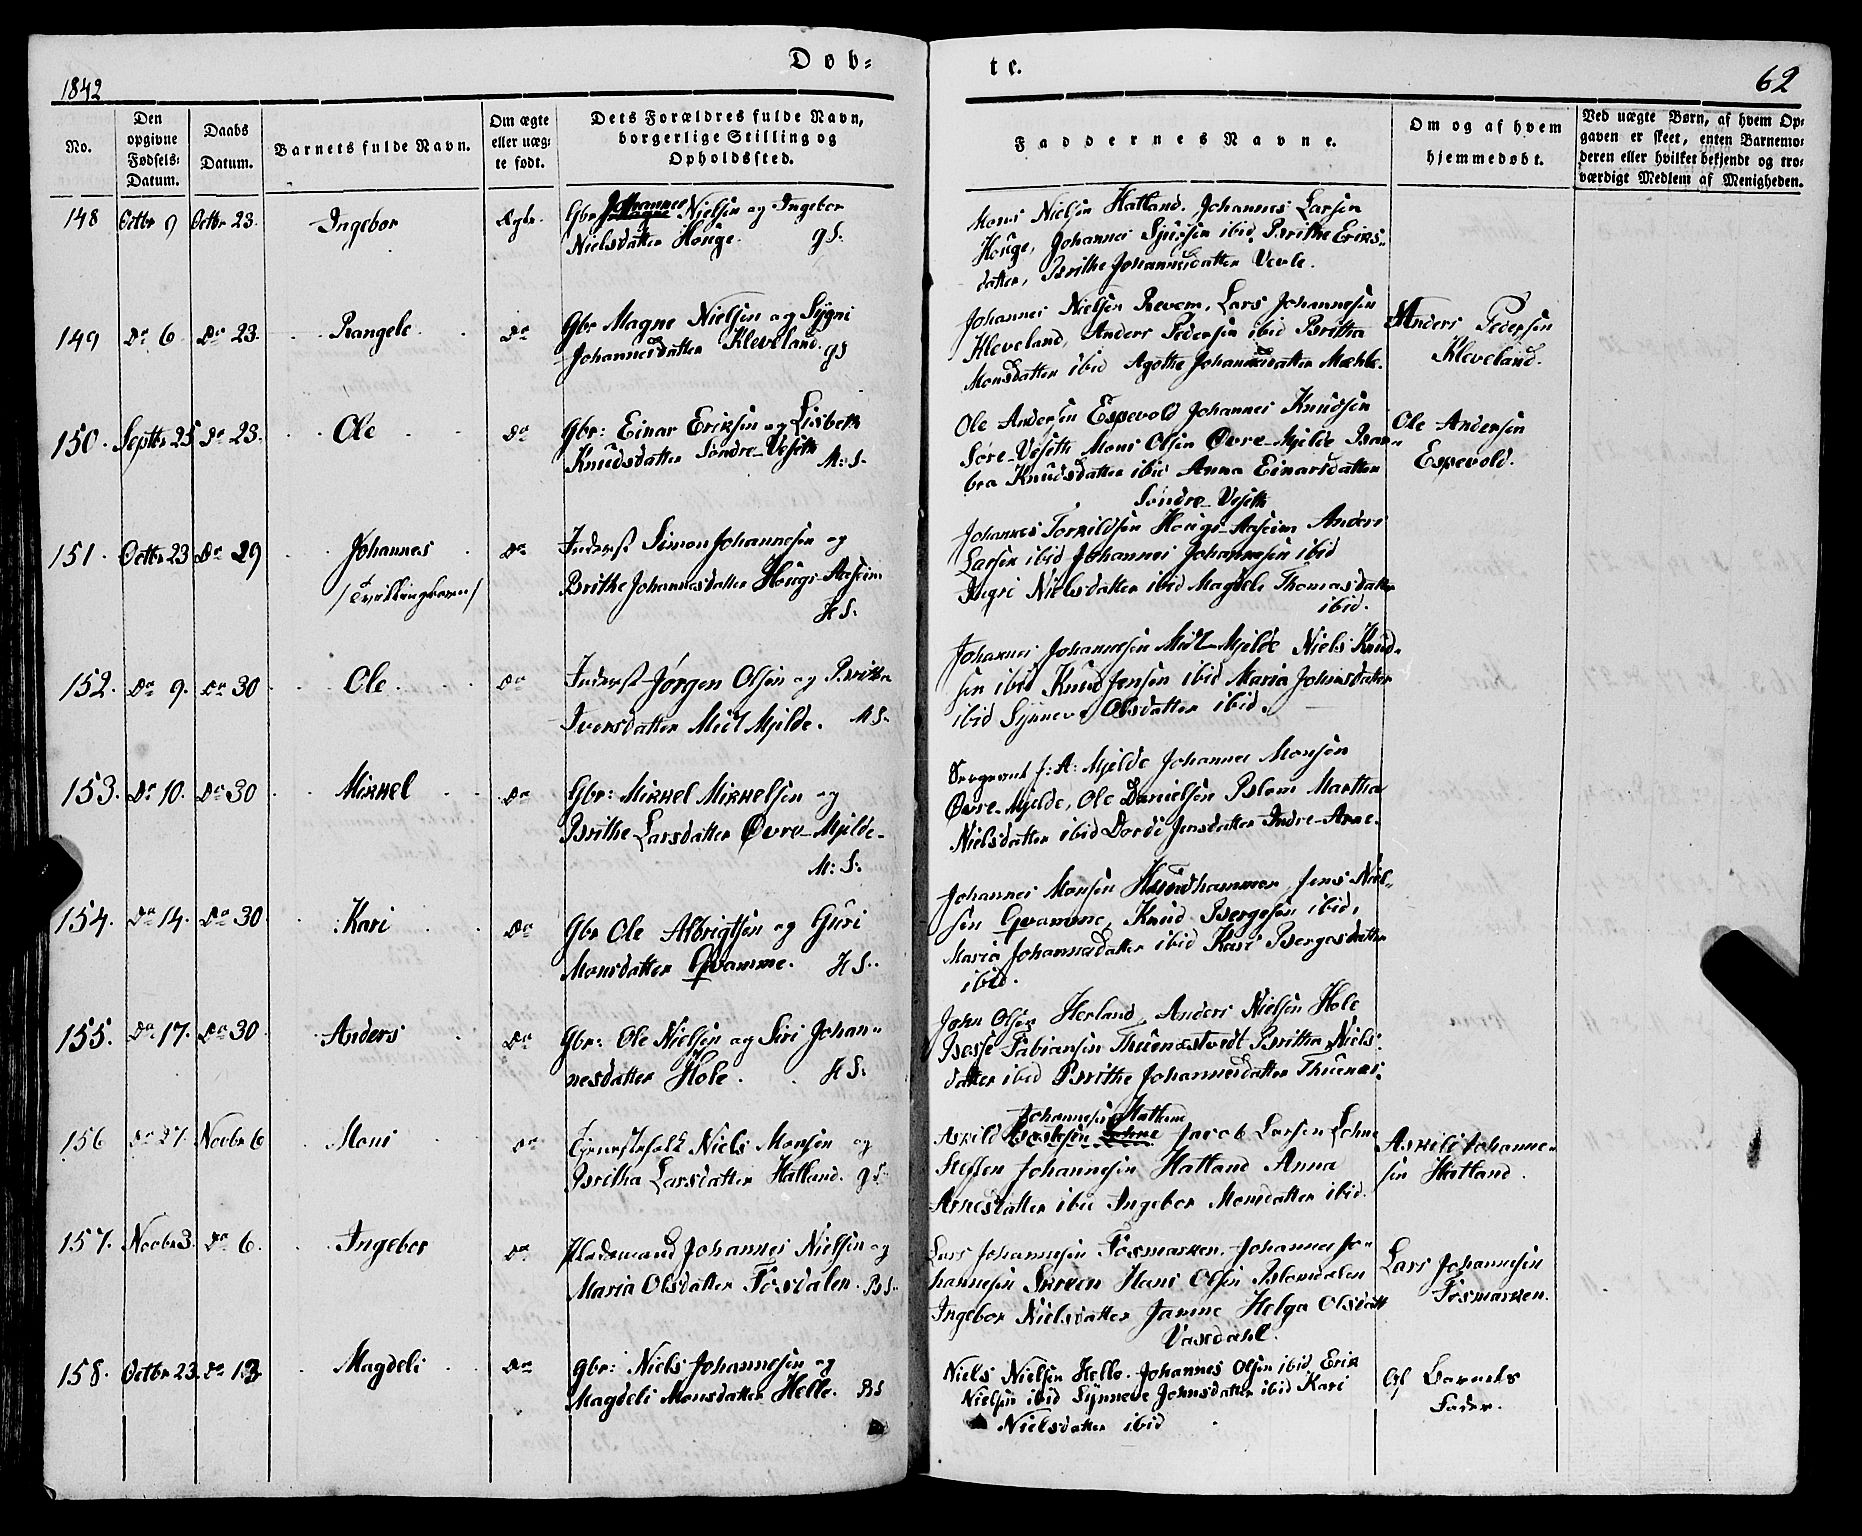 1842
Døb-
te.
62
No.
Den
opgivne
Fødsels-
Datum.
Daabs
Datum.
Barnets fulde Navn.
Om ægte
eller uæg-
te født.
Dets Forældres fulde Navn,
borgerlige Stilling og
Opholdssted.
Faddernes Navne.
Om og af hvem
hjemmedøbt.
Ved uægte Børn, af hvem Op-
gaven er skeet, enten Barnemo-
deren eller hvilket bekjendt og tro-
værdigt Medlem af Menigheden.
148 Octbr 9 Octbr 23. Ingebor Ægte.
Gbr Johannes Nielsen og Ingebor
Nielsdatter Houge. g S.
Mons Nielsen Hatland. Johannes Larsen
Houge, Johannes Sjursen ibid. Brithe Eriks-
datter, Brithe Johannesdatter Vevle.
149 Do 6 Do 23. Rangele Do
Gbr Magne Nielsen og Sygni
Johannesdatter Kleveland. g S
Johannes Nielsen Revem, Lars Johannesen
Kleveland, Anders Pedersen ibid Britha
Monsdatter ibid Agothe Johannesdatter Mæhle.
Anders Pedersen
Kleveland.
150. Septbr 25 Do 23. Ole Do
Gbr: Einar Eriksen og Lisbeth
Knudsdatter Søndre-Veseth M: S.
Ole Andersen Espevold Johannes Knudsen
Søre-Veseth Mons Olsen Øvre-Mjelde Bar-
bra Knudsdatter ibid Anna Einarsdatter
Søndre-Veseth
Ole Andersen
Espevold.
151. Octbr 23 Do 29 Johannes Do
/Tvillingbarn/
Inderst Simon Johannesen og
Brithe Johannesdatter Hougs-Aaseim
H S.
Johannes Torkildsen Hougs-Aaseim Anders
Larsen ibid Johannes Johannesen ibid
Ingri Nielsdatter ibid Magdeli Thomasdatter
ibid.
152. Do 9. Do 30 Ole Do
Inderst Jørgen Olsen og Britha
Iversdatter Midt Mjelde. M S.
Johannes Johannesen Midt-Mjelde Niels Knud-
sen ibid Knud Jensen ibid Maria Johansdatter
ibid Synneve Olsdatter ibid.
153. Do 10. Do 30 Mikkel Do
Gbr: Mikkel Mikkelsen og
Brithe Larsdatter Øvre-Mjelde.
M: S.
Sergeant J: A: Mjelde Johannes Monsen
Øvre-Mjelde, Ole Danielsen Blom Martha
Nielsdatter ibid Dorde Jensdatter Indre-Arne.
154. Do 14. Do 30. Kari Do
Gbr Ole Albrigtsen og Guri
Monsdatter Qvamme. H S.
Johannes Monsen Hamer, Jens Niel-
sen Qvamme, Knud Bergesen ibid,
Maria Johannesdatter ibid Kari Bergesdatter
ibid.
155. Do 17. Do 30. Anders Do
Gbr: Ole Nielsen og Siri Johan-
nesdatter Hole. H S.
John Olsen Herland, Anders Nielsen Hole
Basse Fabiansen Thuenæstvedt Britha Niels-
datter ibid Brithe Johannesdatter Thuenæs.
156 Do 27. Novbr 6 Mons Do
Tjenestefolk Niels Monsen og
Britha Larsdatter Hatland. g S.
Johannesen Hatland
Askild Jacob Larsen Lohne
Steffen Johannesen Hatland Anna
Arnesdatter ibid Ingebor Monsdatter ibid.
Askild Johanne-
sen Hatland.
157. Novbr 3. Do 6. Ingebor Do
Pladsmand Johannes Nielsen og
Maria Olsdatter Fosdalen. B S.
Lars Johannesen Fosmarken, Johannes Jo-
hannesen Skreen Hans Olsen Blomdalen
Ingebor Nielsdatter Jamne Helga Olsdatt
Vaxdahl.
Lars Johannesen
Fosmarken.
158. Octbr 23. Do 13. Magdeli Do
Gbr: Niels Johannesen og
Magdeli Monsdatter Helle. B S
Niels Nielsen Helle. Johannes Olsen ibid Erik
Nielsen ibid Synneve Johnsdatter ibid Kari
Nielsdatter ibid
Af Barnets
Fader.